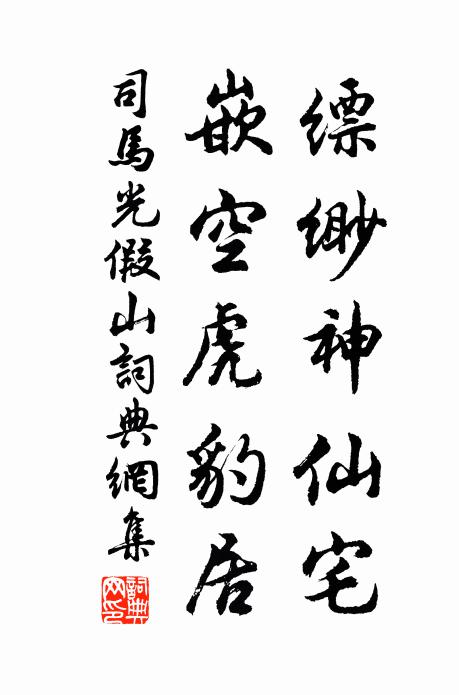 缥缈神仙宅
嵌空虎豹居
司馬光假山詞典網集
詞典网印